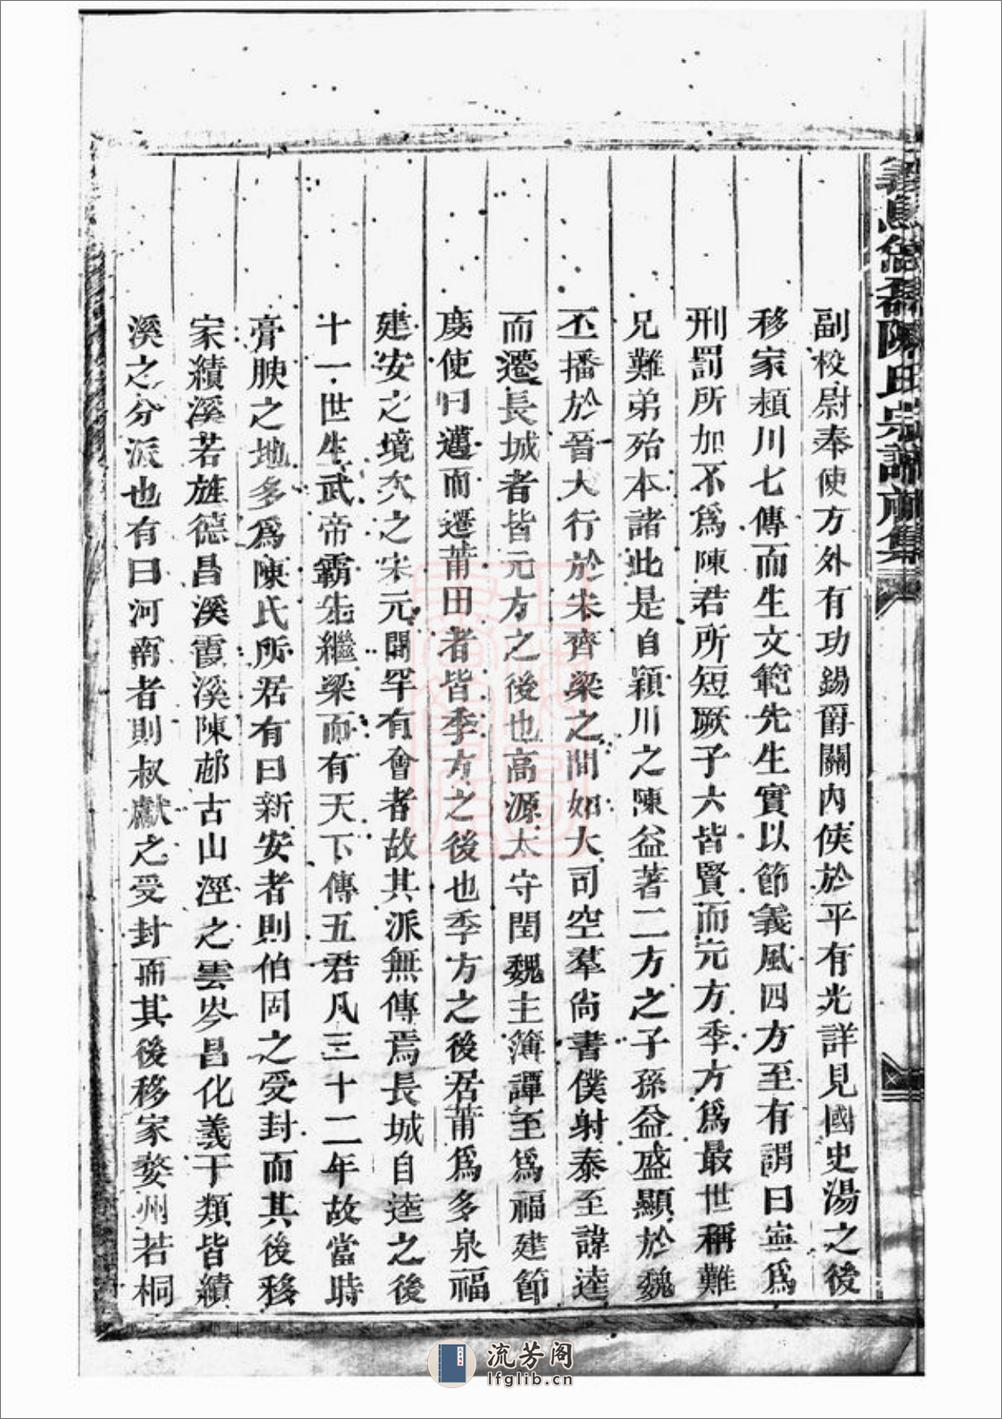 義烏倍磊陳氏宗譜前集
副校尉奉使方外有功錫爵關內侯於平有光詳見國史湯之後
移家潁川七傳而生文範先生實以節義風四方至有謂曰寧爲
刑罰所加不爲陳君所短厥子六皆賢而元方季方爲最世稱難
兄難弟殆本諸此是自潁川之陳益著二方之子孫益盛顯於魏
丕播於晉大行於宋齊梁之間如大司空羣尚書僕射泰至諱逵
而遷長城者皆元方之後也高源太守閏魏主簿譚至爲福建節
度使曰邁而遷莆田者皆季方之後也季方之後居莆爲多泉福
建安之境次之宋元間罕有會者故其派無傳焉長城自逵之後
十一世生武帝霸先繼梁而有天下傳五君凡三十二年故當時
膏腴之地多爲陳氏所居有曰新安者則伯固之受封而其後移
家績溪若旌德昌溪霞溪陳邨古山涇之雲岑昌化義干類皆績
溪之分派也有曰河南者則叔獻之受封而其後移家婺州若桐
流芳阁
lfglib.cn